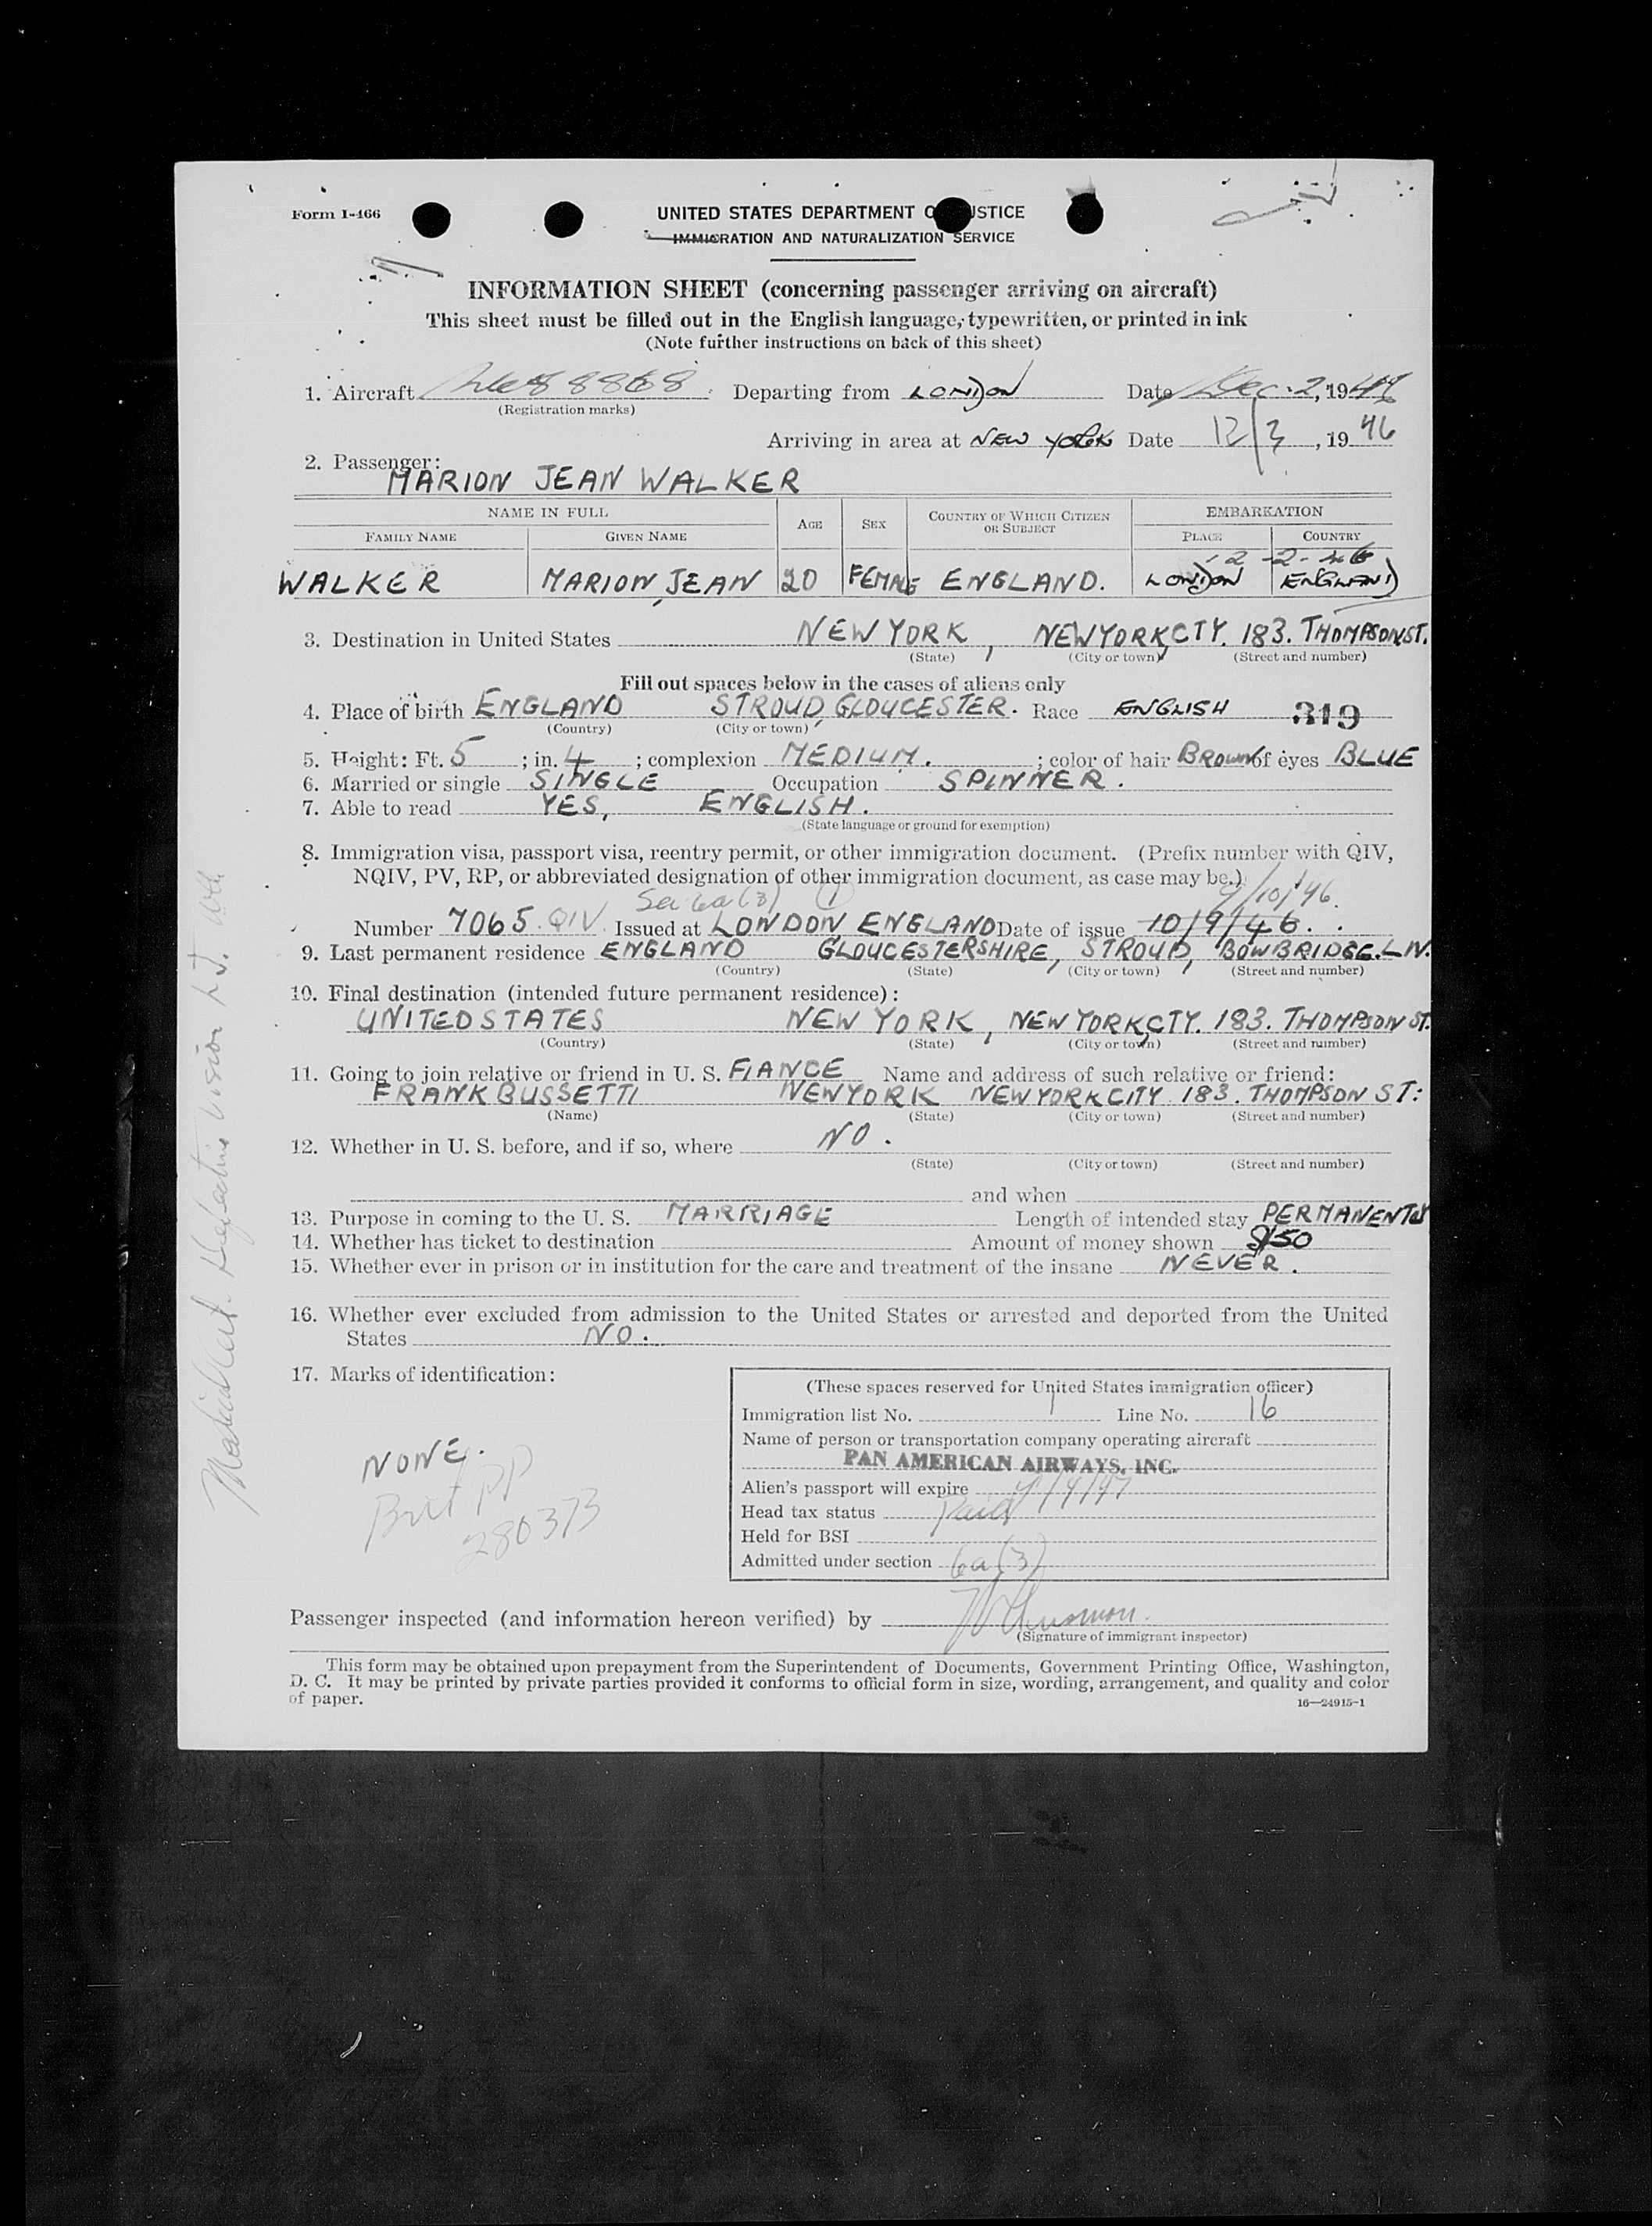 Form I-466
UNITED STATES DEPARTMENT OF JUSTICE
IMMIGRATION AND NATURALIZATION SERVICE
INFORMATION SHEET (concerning passenger arriving on aircraft)
This sheet must be filled out in the English language, typewritten, or printed in ink
(Note further instructions on back of this sheet)
1. Aircraft 88868 Departing from LONDON Date Dec. 2, 1946
(Registration marks)
Arriving in area at NEW YORK Date 12/3, 1946
2. Passenger:
MARION JEAN WALKER
NAME IN FULL AGE SEX COUNTRY OF WHICH CITIZEN OR SUBJECT EMBARKATION
FAMILY NAME GIVEN NAME PLACE COUNTRY
12-2-46
WALKER MARION, JEAN 20 FEMALE ENGLAND. LONDON ENGLAND
3. Destination in United States NEW YORK, NEW YORK, CTY. 183. THOMPSON ST.
(State) (City or town) (Street and number)
Fill out spaces below in the cases of aliens only
4. Place of birth ENGLAND STROUD, GLOUCESTER. Race ENGLISH 319
(Country) (City or town)
5. Height: Ft. 5; in. 4; complexion MEDIUM.; color of hair BROWN of eyes BLUE
6. Married or single SINGLE Occupation SPINNER.
7. Able to read YES, ENGLISH.
(State language or ground for exemption)
8. Immigration visa, passport visa, reentry permit, or other immigration document. (Prefix number with QIV,
NQIV, PV, RP, or abbreviated designation of other immigration document, as case may be.)
Sec 6a(3) 1 9/10/46.
Number 7065 QIV. Issued at LONDON, ENGLAND Date of issue 10/9/46.
9. Last permanent residence ENGLAND GLOUCESTERSHIRE, STROUD, BOWBRIDGE. LN.
(Country) (State) (City or town) (Street and number)
10. Final destination (intended future permanent residence):
UNITED STATES NEW YORK, NEW YORK, CTY. 183. THOMPSON ST.
(Country) (State) (City or town) (Street and number)
11. Going to join relative or friend in U. S. FIANCE Name and address of such relative or friend:
FRANK BUSSETTI NEW YORK NEW YORK CITY 183. THOMPSON ST:
(Name) (State) (City or town) (Street and number)
12. Whether in U. S. before, and if so, where NO.
(State) (City or town) (Street and number)
and when
13. Purpose in coming to the U. S. MARRIAGE Length of intended stay PERMANENTLY
14. Whether has ticket to destination Amount of money shown $150
15. Whether ever in prison or in institution for the care and treatment of the insane NEVER.
16. Whether ever excluded from admission to the United States or arrested and deported from the United
States NO.
17. Marks of identification:
NONE.
Brit PP
280373
(These spaces reserved for United States immigration officer)
Immigration list No. 1 Line No. 16
Name of person or transportation company operating aircraft
PAN AMERICAN AIRWAYS, INC.
Alien's passport will expire 9/4/47
Head tax status Paid
Held for BSI
Admitted under section 6a(3)
Passenger inspected (and information hereon verified) by
(Signature of immigrant inspector)
This form may be obtained upon prepayment from the Superintendent of Documents, Government Printing Office, Washington,
D. C. It may be printed by private parties provided it conforms to official form in size, wording, arrangement, and quality and color
of paper.
16—24915-1
Medical Cert. defective vision